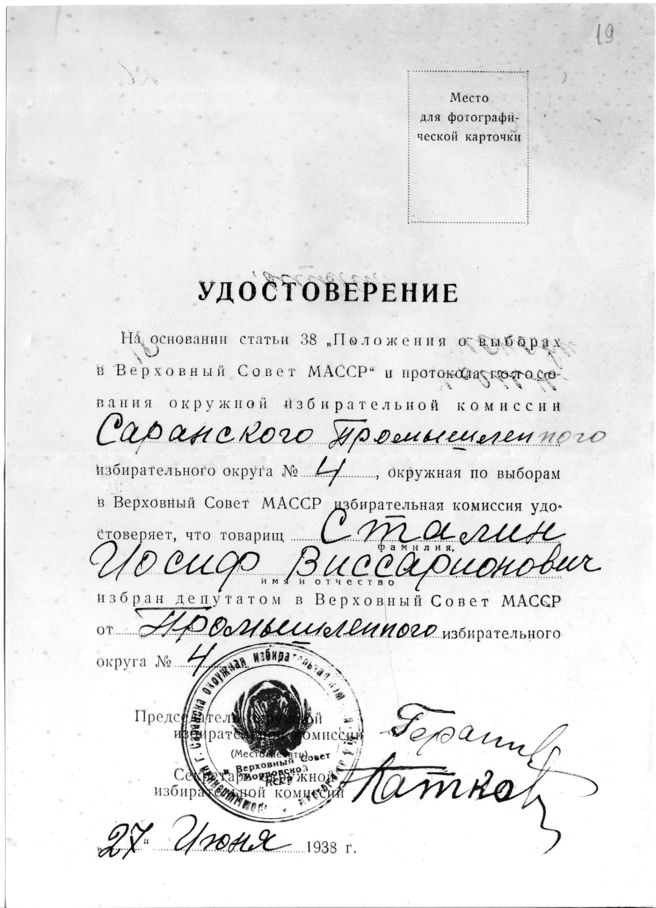 19
Место
для фотографи-
ческой карточки
УДОСТОВЕРЕНИЕ
На основании статьи 38 „Положения о выборах
в Верховный Совет МАССР“ и протокола голосо-
вания окружной избирательной комиссии
Саранского Промышленного
избирательного округа № 4, окружная по выборам
в Верховный Совет МАССР избирательная комиссия удо-
стоверяет, что товарищ Сталин
фамилия,
Иосиф Виссарионович
имя и отчество
избран депутатом в Верховный Совет МАССР
от Промышленного избирательного
округа № 4
Председатель окружной
избирательной комиссии
(Место печати)
в Верховный Совет
Мордовской
АССР
Секретарь окружной
избирательной комиссии
„27“ Июня 1938 г.